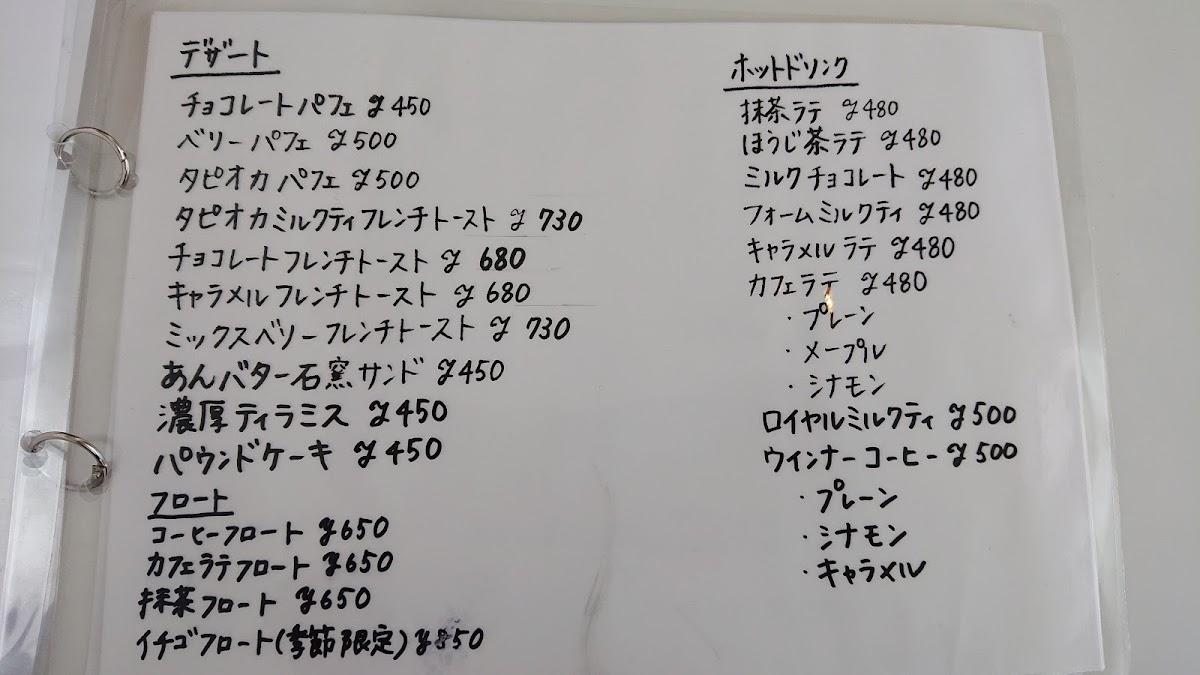 デザート
チョコレートパフェ ¥450
ベリーパフェ ¥500
タピオカパフェ ¥500
タピオカミルクティフレンチトースト ¥730
チョコレートフレンチトースト ¥680
キャラメルフレンチトースト ¥680
ミックスベリーフレンチトースト ¥730
あんバター石窯サンド ¥450
濃厚ティラミス ¥450
パウンドケーキ ¥450
フロート
コーヒーフロート ¥650
カフェラテフロート ¥650
抹茶フロート ¥650
イチゴフロート(季節限定) ¥850
ホットドリンク
抹茶ラテ ¥480
ほうじ茶ラテ ¥480
ミルクチョコレート ¥480
フォームミルクティ ¥480
キャラメルラテ ¥480
カフェラテ ¥480
・プレーン
・メープル
・シナモン
ロイヤルミルクティ ¥500
ウインナーコーヒー ¥500
・プレーン
・シナモン
・キャラメル